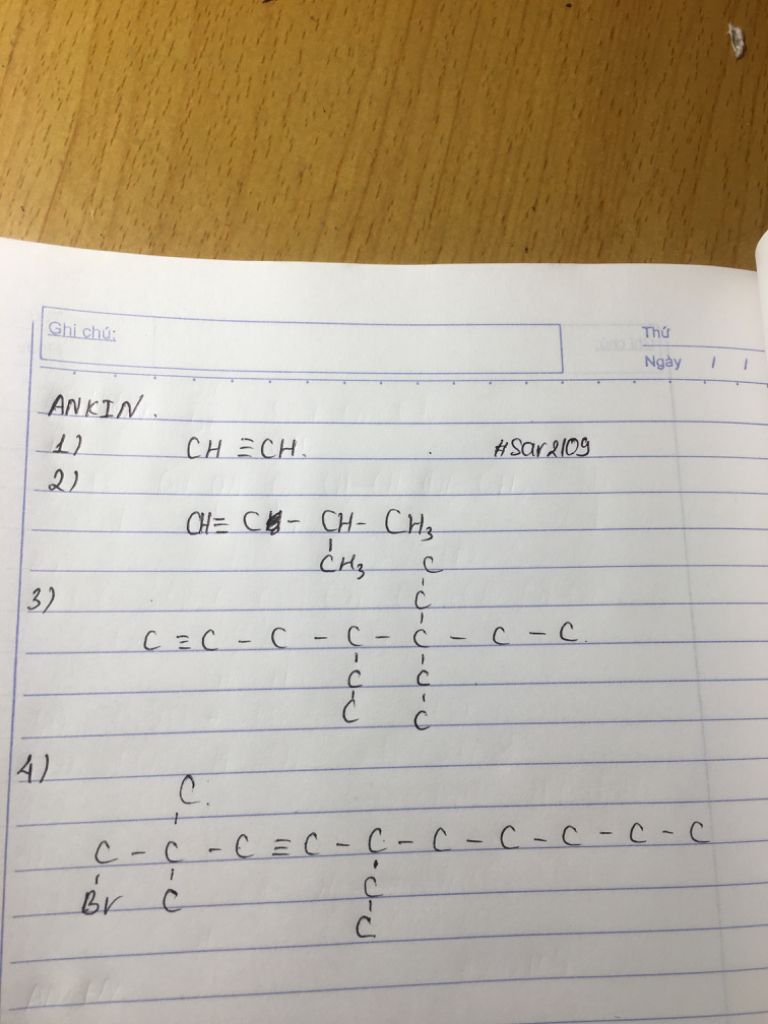 Ghi chú:
Thứ
Ngày / /
ANKIN.
1) CH ≡ CH. #Sar2109
2)
CH ≡ C - CH - CH₃
CH₃ C
3) C
C ≡ C - C - C - C - C - C.
C C
C C
4)
C.
C - C - C ≡ C - C - C - C - C - C - C
Br C C
C